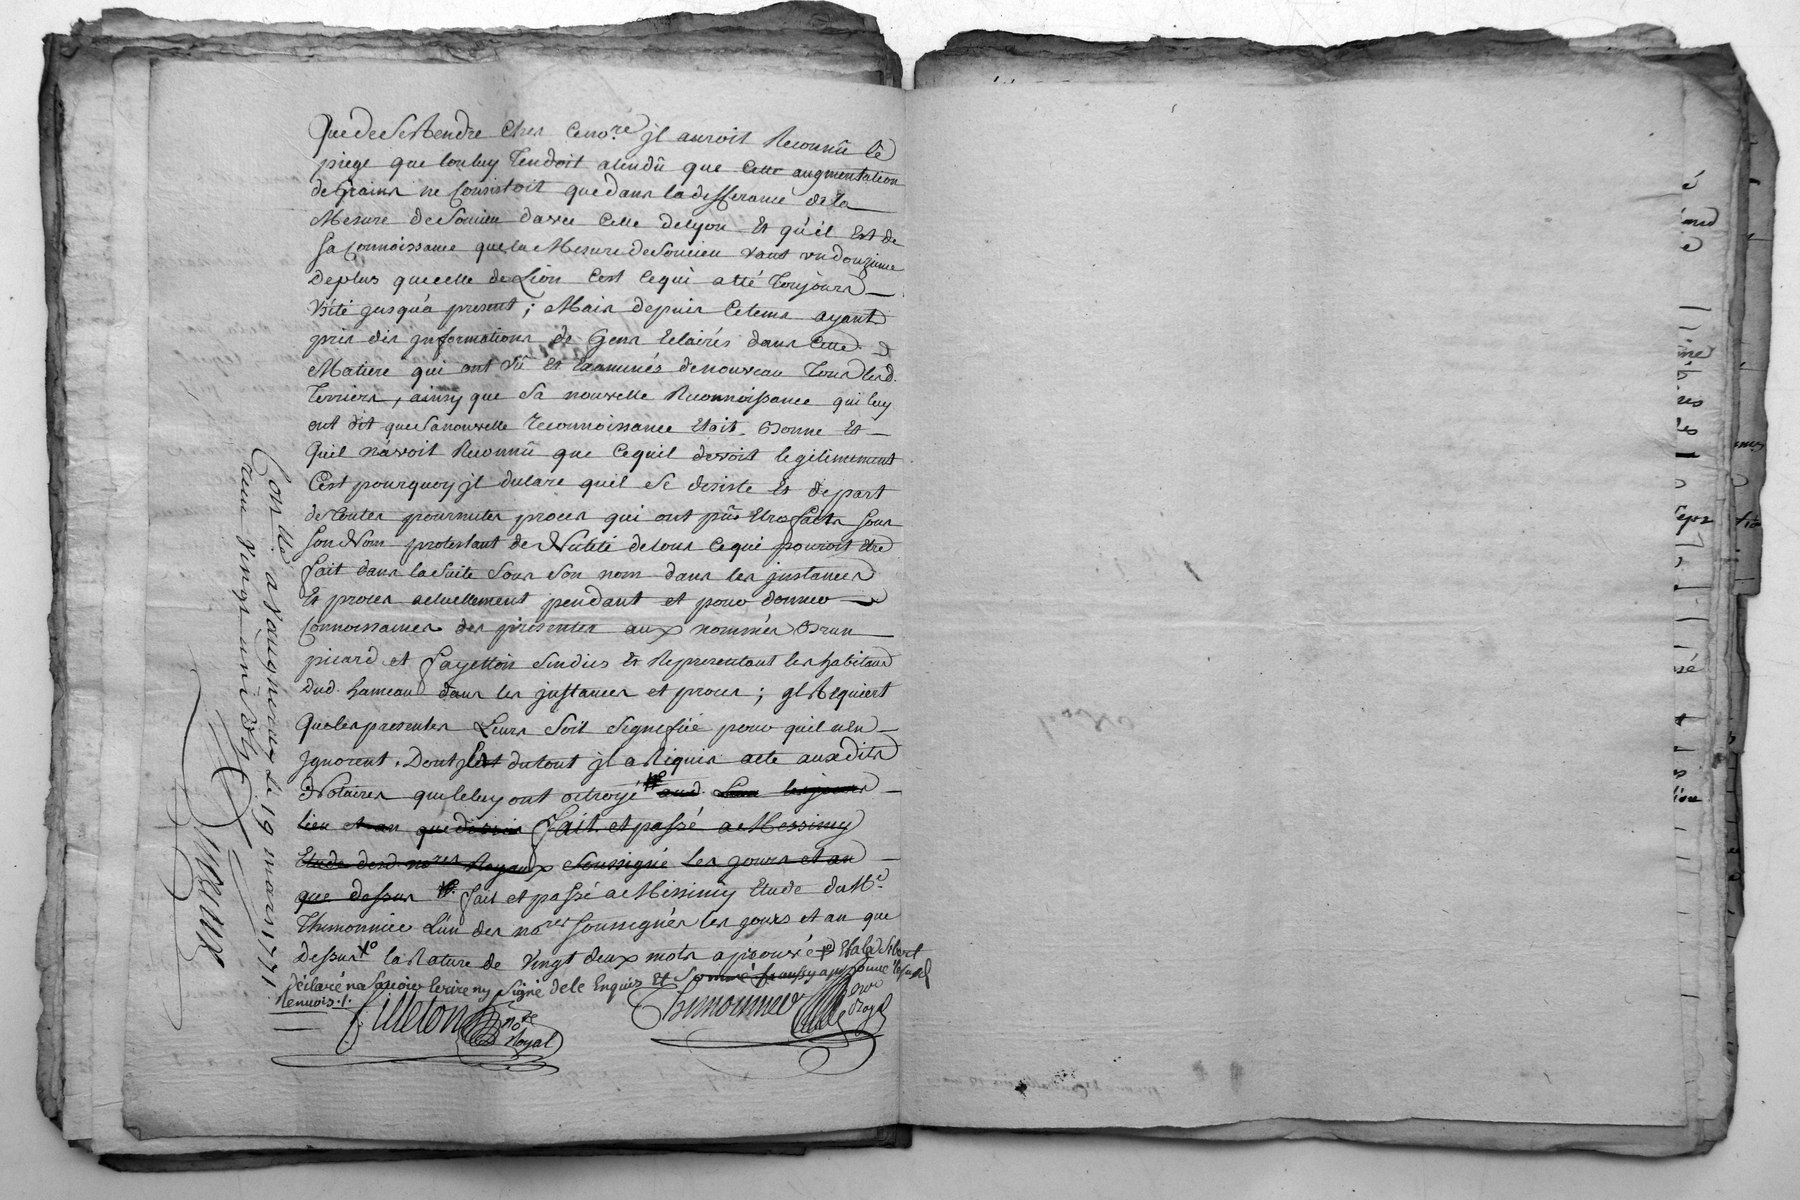 Que de se Rendre cher ce no.re jl auroit Reconnû le
piege que lon luy Tendoit atendû que cette augmentation
de Grains ne Consistoit que dans la defferance de la
Mesure de Soucieu davec Celle de lyon Et qu'il Est de
sa Connoissance que la Mesure de Soucieu vaut un douzieme
De plus que celle de Lion C'est ce qui a êté Toujours
Usité jusqu'a present ; Mais depuis Cetems ayant
pris des jnformations de Gens Eclairés dans Cette
Matiere qui ont Vû Et Examinés denouveau Tous lesd.
Terriers, ainsy que Sa nouvelle Reconnoissance qui luy
ont dit que Sa nouvelle reconnoissance Etoit Bonne Et
Quil n'avoit Reconnû que Ce quil devoit legitimement
C'est pourquoy jl declare quil Se desiste Et depart
de toutes poursuites proces qui ont pûs Etre faits sous
son Nom protestant de Nulité de tous Ce qui pouroit Etre
fait dans la Suite Sous Son nom dans les jnstances
Et proces actuellement pendant et pour donner
Connoissances des presentes aux nommés Brun
picard et fayetton Sindics Et Representant les habitans
Dud. hameau dans les jnstances et proces ; jl Requiert
Que les presentes Leurs Soit Signefiée pour quil n'En
jgnorent. Dont Et du tout jl a Requis acte auxdits
Notaires que le luy ont octroyé aud. les jours
lieu et an que dessus fait et passé a Messimy
Etude desd. no.res Royaux Soussigné Les jours et an
que dessus fait et passé a Messimy Etude de M.e
Thimonnier L'un des no.res soussignés les jours et an que
dessus la Rature de Vingt deux mots aprouvée
Déclaré na Savoir Ecrire ny Signé de ce Enquis Et
Renvois
Filleton no.re Royal
Thimonnier
Con.llé a Vaugneray Le 19 mars 1771
Recu Vingt un